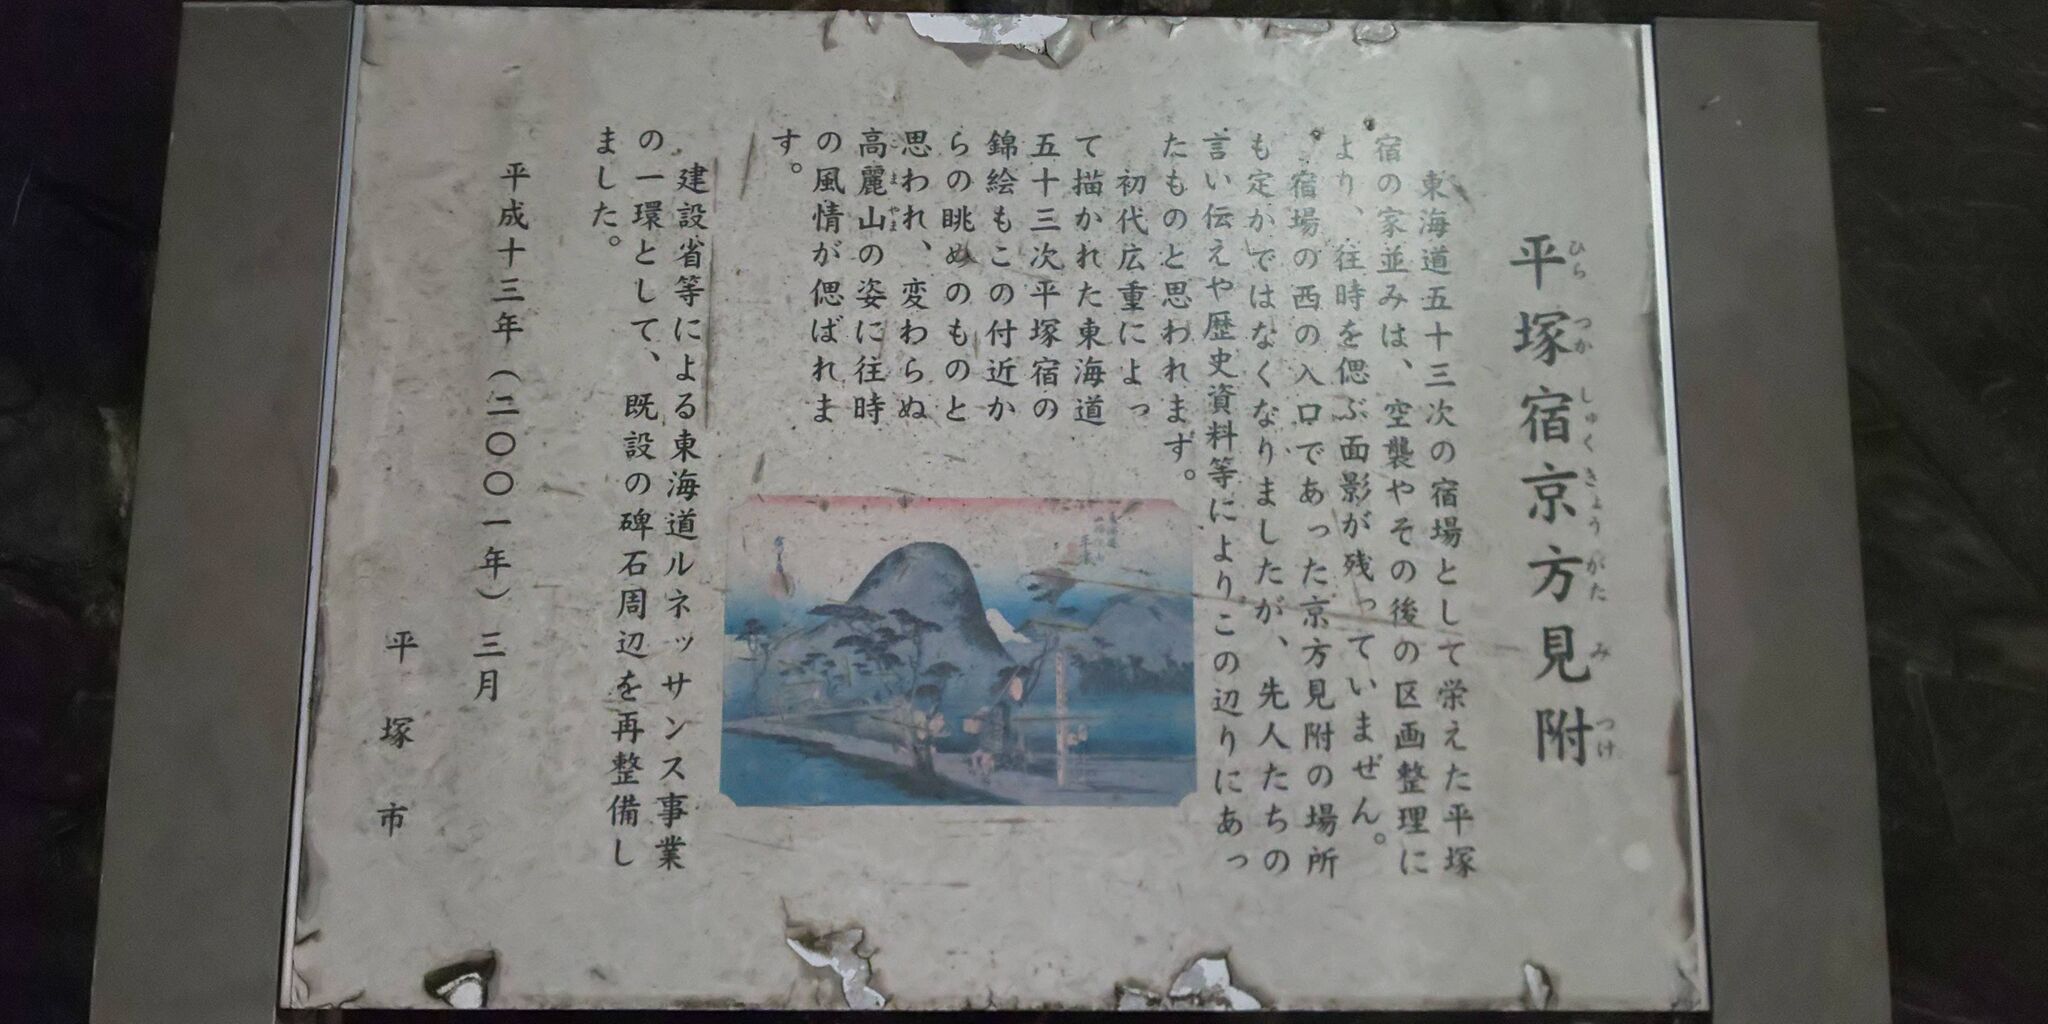 平塚宿京方見附
ひらつかしゅくきょうがたみつけ
東海道五十三次の宿場として栄えた平塚
宿の家並みは、空襲やその後の区画整理に
より、往時を偲ぶ面影が残っていません。
宿場の西の入口であった京方見附の場所
も定かではなくなりましたが、先人たちの
言い伝えや歴史資料等によりこの辺りにあっ
たものと思われます。
初代広重によっ
て描かれた東海道
五十三次平塚宿の
錦絵もこの付近か
らの眺めのものと
思われ、変わらぬ
高麗山の姿に往時
こまやま
の風情が偲ばれま
す。
建設省等による東海道ルネッサンス事業
の一環として、既設の碑石周辺を再整備し
ました。
平成十三年（二〇〇一年）三月
平塚市